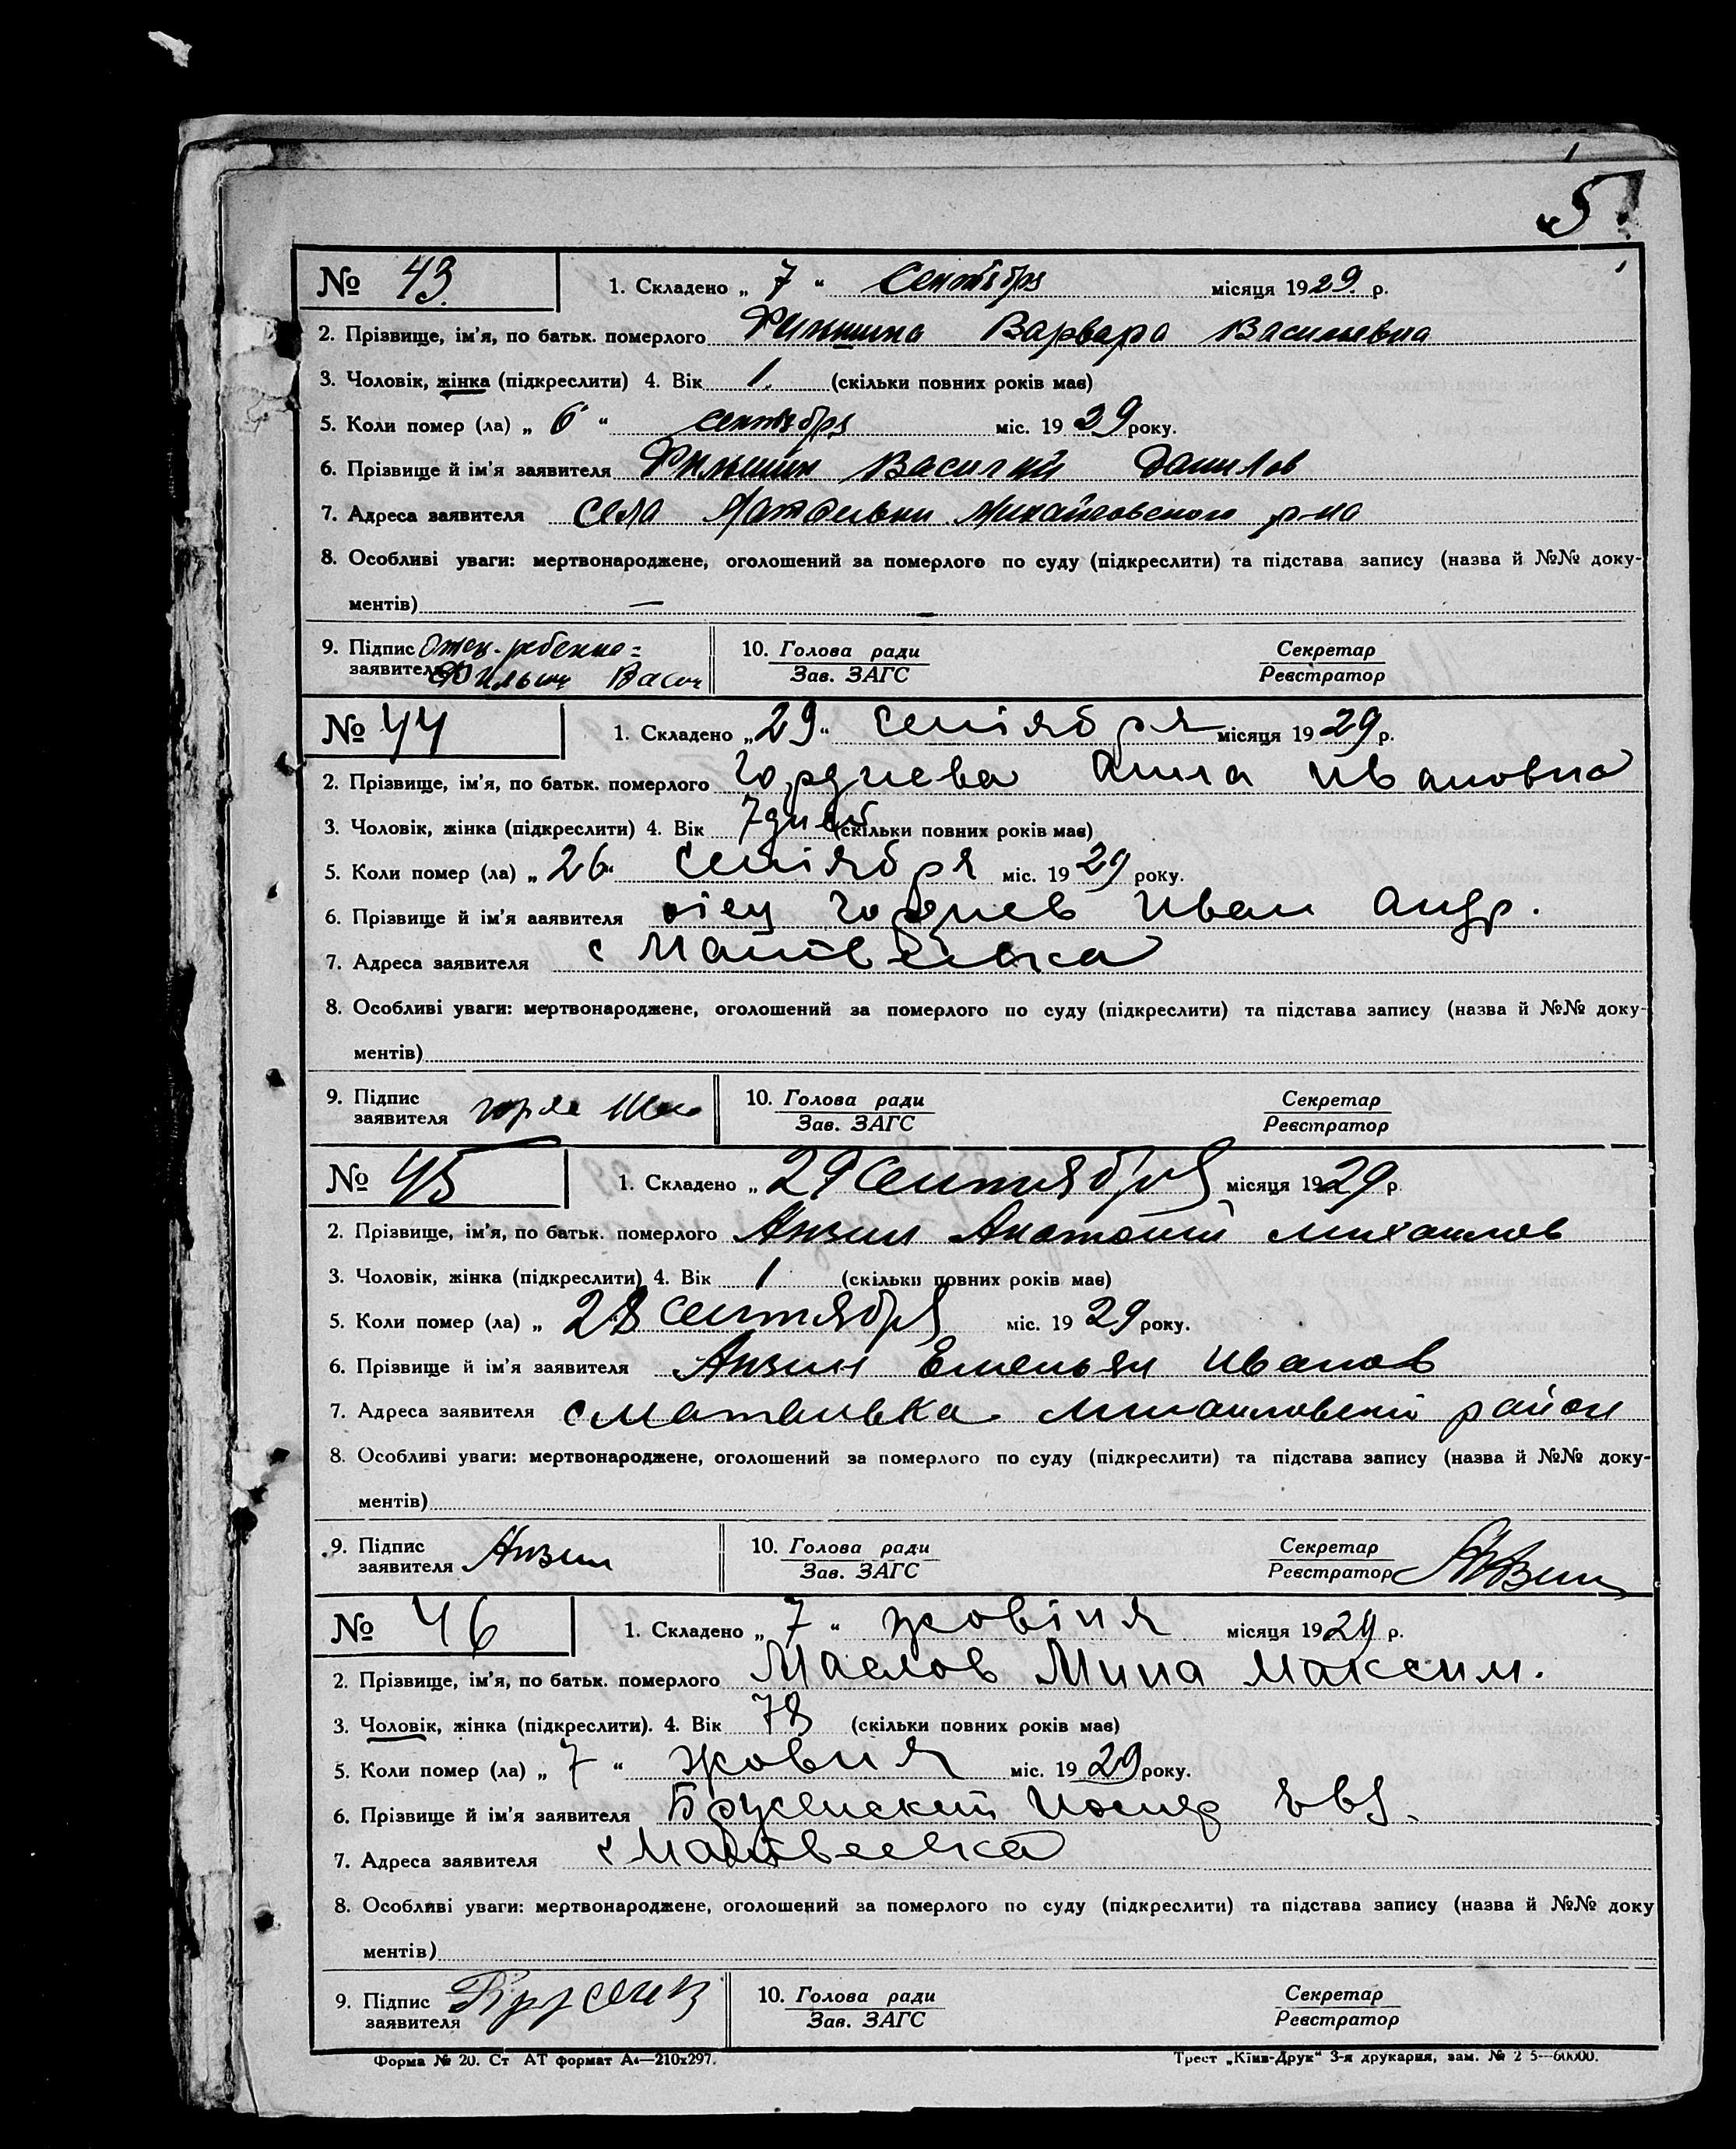 5
№ 43. 1. Складено „ 7 “ Сентября місяця 1929. р.
2. Прізвище, ім'я, по батьк. померлого Варвара Васильевна
3. Чоловік, жінка (підкреслити) 4. Вік 1. (скільки повних років має)
5. Коли помер (ла) „ 6 “ сентября міс. 1929 року.
6. Прізвище й ім'я заявителя Фильшин Василий Данилов
7. Адреса заявителя села Матвеевки Михайловского р-на
8. Особливі уваги: мертвонароджене, оголошений за померлого по суду (підкреслити) та підстава запису (назва й №№ доку-
ментів) —
9. Підпис заявителя Отец ребенка = Фильшин Васи 10. Голова ради Секретар
Зав. ЗАГС Реєстратор
№ 44 1. Складено „ 29 “ сентября місяця 1929 р.
2. Прізвище, ім'я, по батьк. померлого Гордиева Анна Ивановна
3. Чоловік, жінка (підкреслити) 4. Вік 7 дней (скільки повних років має)
5. Коли помер (ла) „ 26 “ сентября міс. 1929 року.
6. Прізвище й ім'я заявителя отец Гордиев Иван Андр.
7. Адреса заявителя с Матвеевка
8. Особливі уваги: мертвонароджене, оголошений за померлого по суду (підкреслити) та підстава запису (назва й №№ доку-
ментів)
9. Підпис заявителя 10. Голова ради Секретар
Зав. ЗАГС Реєстратор
№ 45 1. Складено „ 29 сентября місяця 1929 р
2. Прізвище, ім'я, по батьк. померлого Анзин Анатолий Михаилов
3. Чоловік, жінка (підкреслити) 4. Вік 1 (скільки повних років має)
5. Коли помер (ла) „ 28 сентября міс. 1929 року.
6. Прізвище й ім'я заявителя Анзин Емельян Иванов
7. Адреса заявителя с Матвеевка Михаиловский район
8. Особливі уваги: мертвонароджене, оголошений за померлого по суду (підкреслити) та підстава запису (назва й №№ доку-
ментів)
9. Підпис заявителя Анзин 10. Голова ради Секретар
Зав. ЗАГС Реєстратор Анзин
№ 46 1. Складено „ 7 “ жовтня місяця 1929 р.
2. Прізвище, ім'я, по батьк. померлого Маслов Мина Максим.
3. Чоловік, жінка (підкреслити). 4. Вік 78 (скільки повних років має)
5. Коли помер (ла) „ 7 “ жовтня міс. 1929 року.
6. Прізвище й ім'я заявителя Брусенский Иосиф
7. Адреса заявителя с Матвеевка
8. Особливі уваги: мертвонароджене, оголошений за померлого по суду (підкреслити) та підстава запису (назва й №№ доку
ментів)
9. Підпис заявителя 10. Голова ради Секретар
Зав. ЗАГС Реєстратор
Форма № 20. Ст АТ формат А4—210х297. Трест „Київ-Друк“ 3-я друкарня, зам. № 2 5—60000.